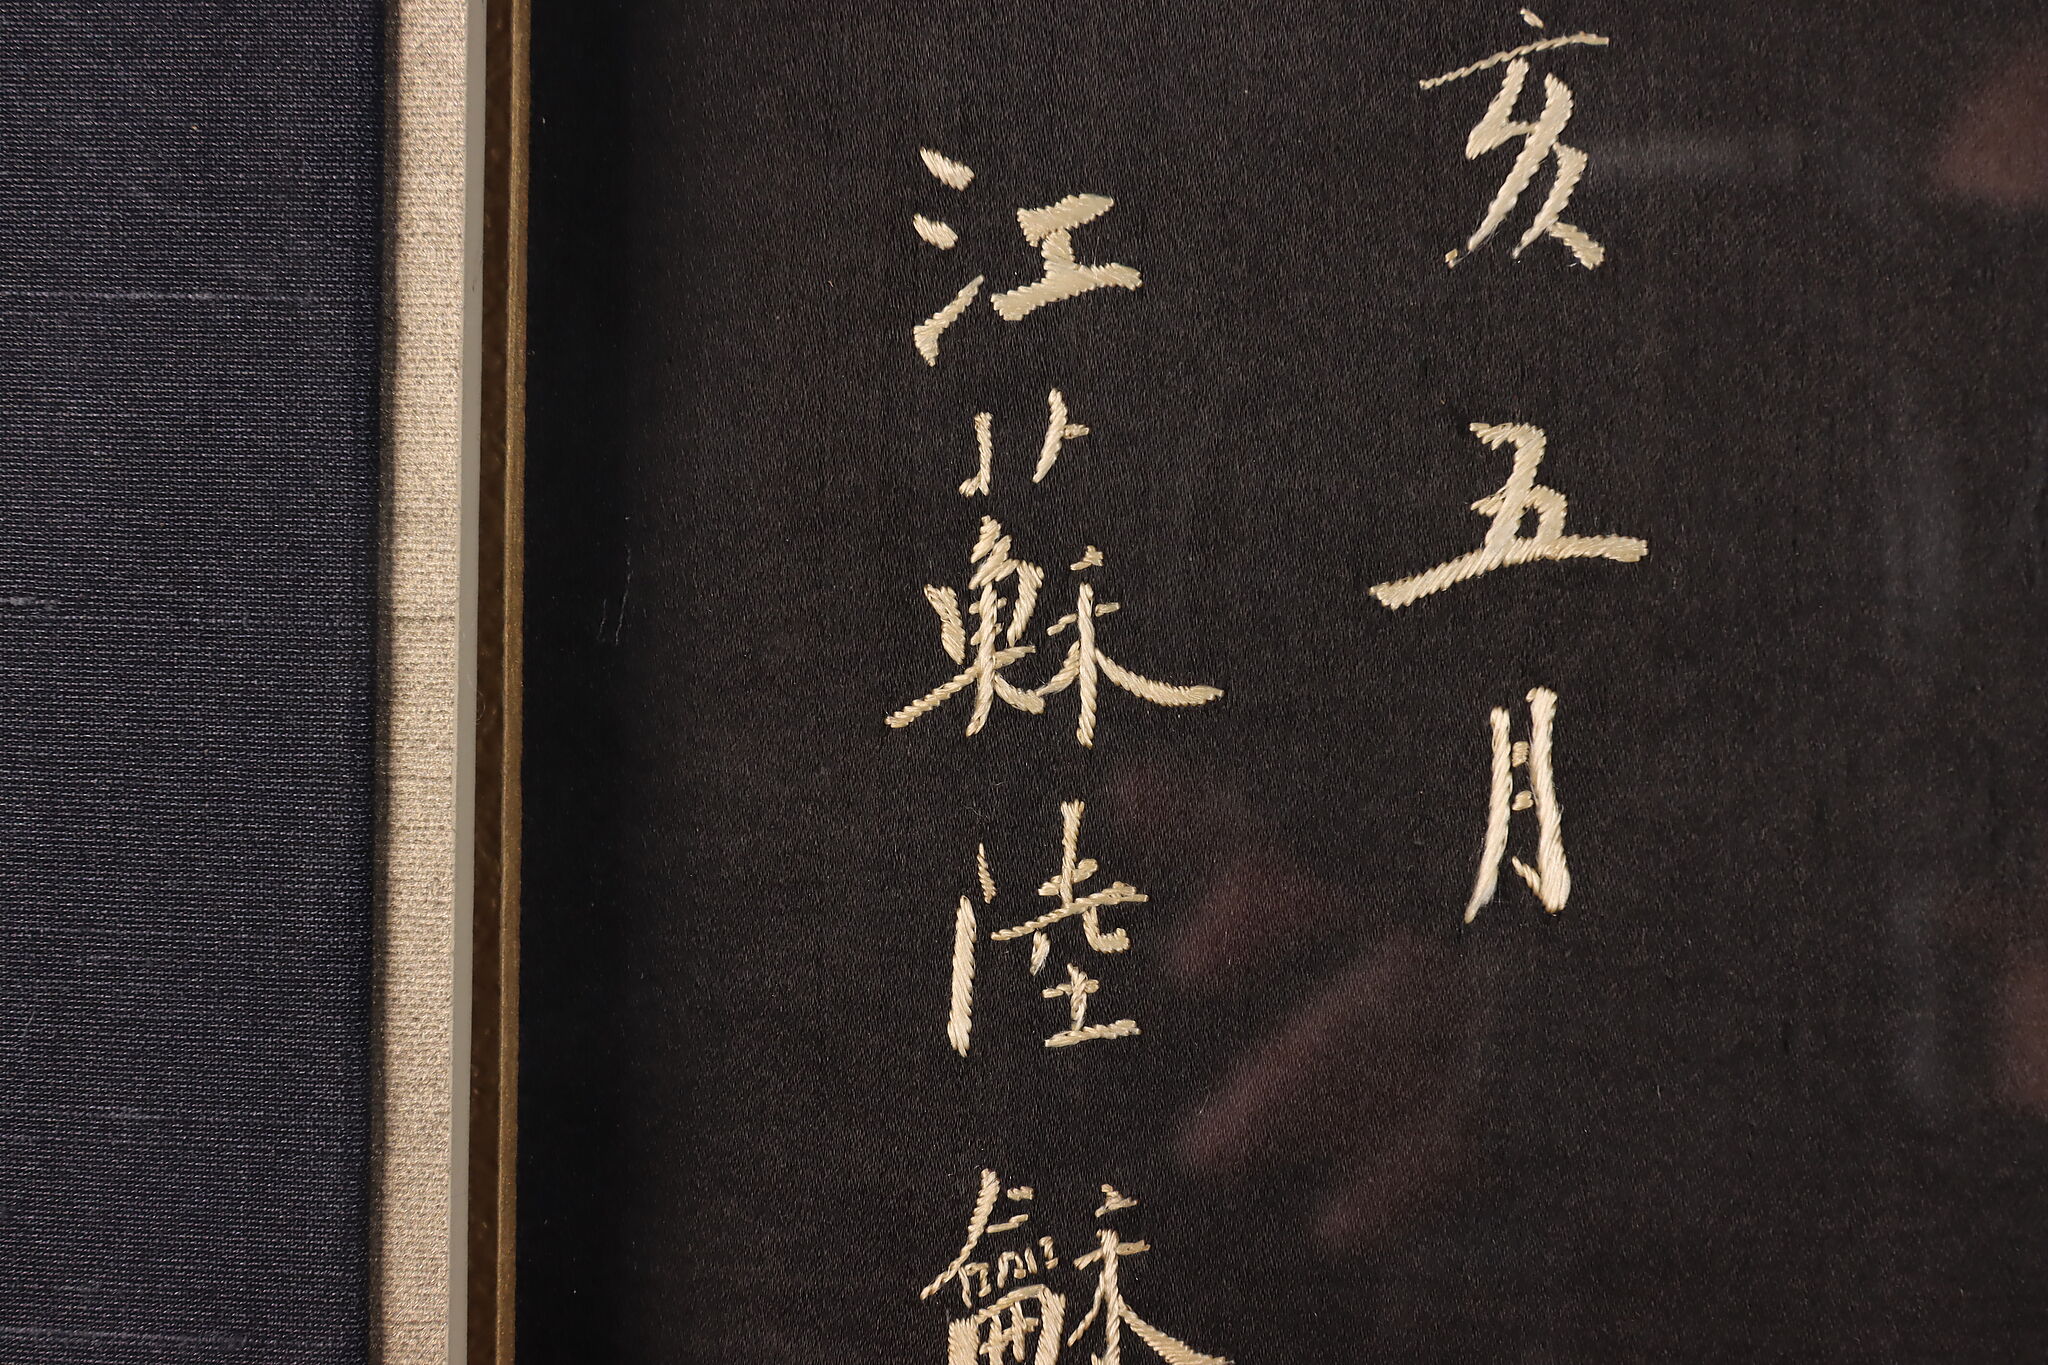 亥五月
江蘇陸龢